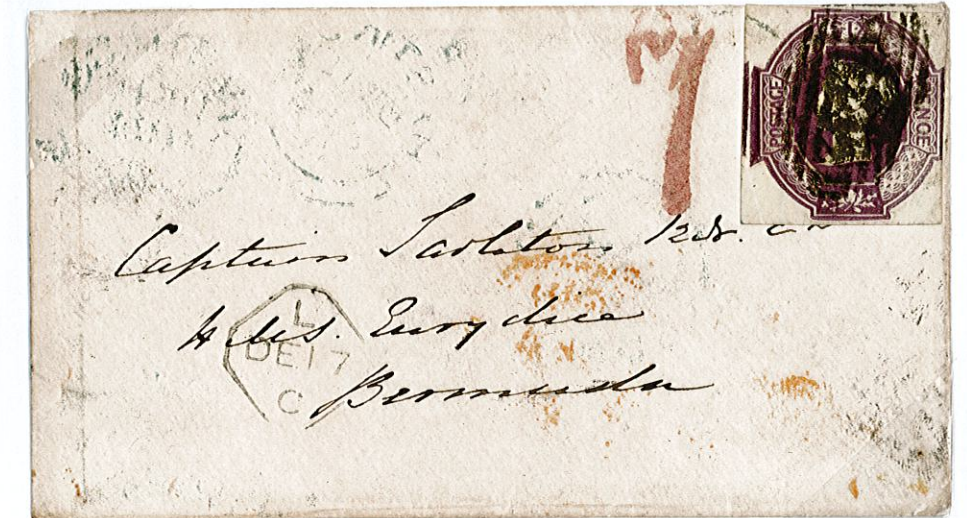 POSTAGE
7
Captain Tarleton R.N. C B
H.M.S. Eurydice
Bermuda
L
DE17
C